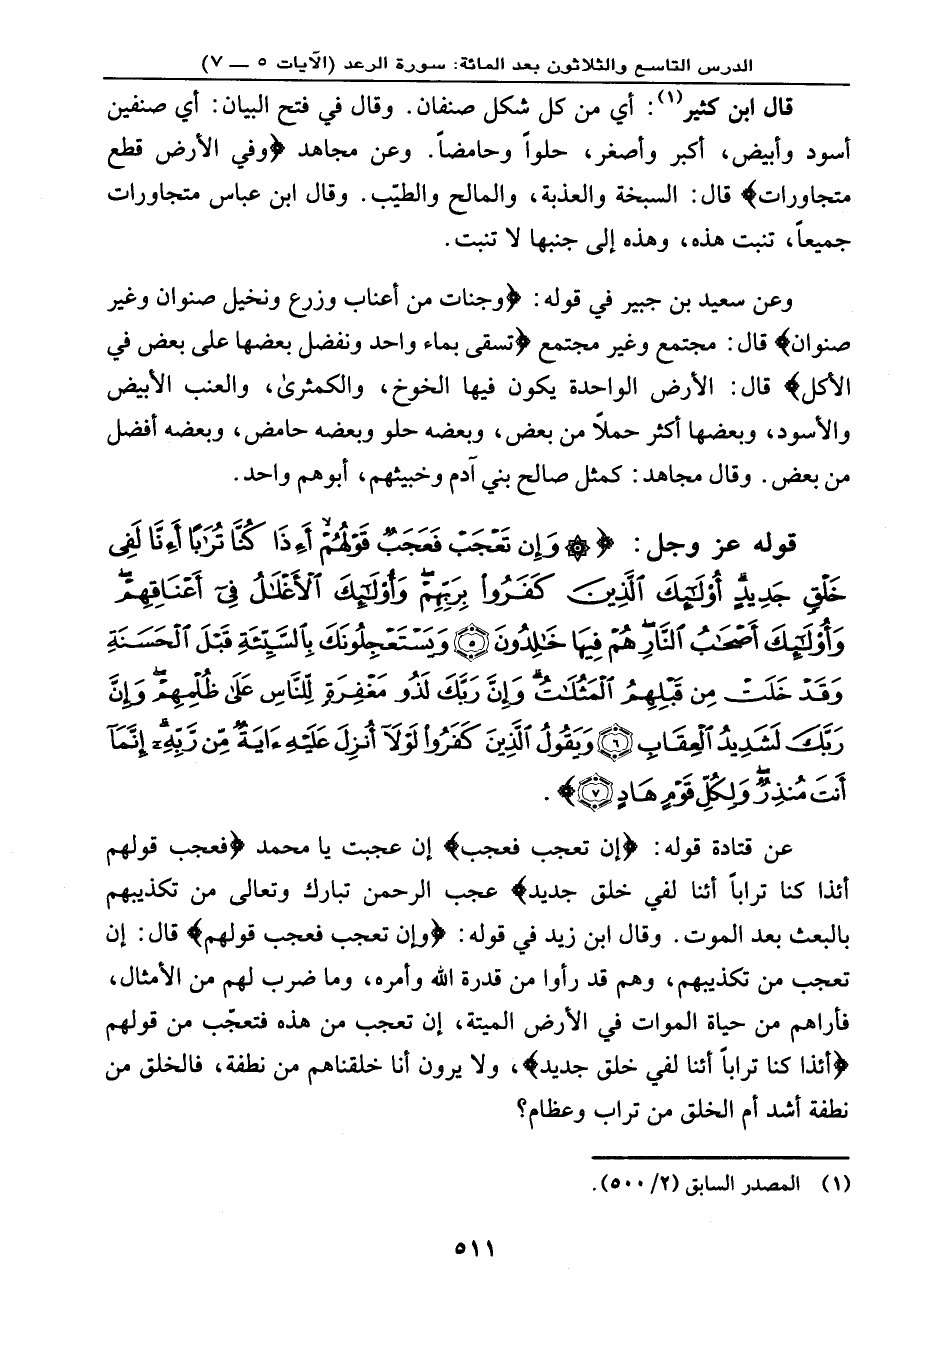 الدرس التاسع والثلاثون بعد المائة: سورة الرعد (الآيات ٥ — ٧)
قال ابن كثير(١): أي من كل شكل صنفان. وقال في فتح البيان: أي صنفين
أسود وأبيض، أكبر وأصغر، حلواً وحامضاً. وعن مجاهد ﴿وفي الأرض قطع
متجاورات﴾ قال: السبخة والعذبة، والمالح والطيّب. وقال ابن عباس متجاورات
جميعاً، تنبت هذه، وهذه إلى جنبها لا تنبت.
وعن سعيد بن جبير في قوله: ﴿وجنات من أعناب وزرع ونخيل صنوان وغير
صنوان﴾ قال: مجتمع وغير مجتمع ﴿تسقى بماء واحد ونفضل بعضها على بعض في
الأكل﴾ قال: الأرض الواحدة يكون فيها الخوخ، والكمثرىٰ، والعنب الأبيض
والأسود، وبعضها أكثر حملاً من بعض، وبعضه حلو وبعضه حامض، وبعضه أفضل
من بعض. وقال مجاهد: كمثل صالح بني آدم وخبيثهم، أبوهم واحد.
قوله عز وجل: ﴿۞ وَإِن تَعۡجَبۡ فَعَجَبٞ قَوۡلُهُمۡ أَءِذَا كُنَّا تُرَٰبًا أَءِنَّا لَفِي
خَلۡقٖ جَدِيدٍۗ أُوْلَٰٓئِكَ ٱلَّذِينَ كَفَرُواْ بِرَبِّهِمۡۖ وَأُوْلَٰٓئِكَ ٱلۡأَغۡلَٰلُ فِيٓ أَعۡنَاقِهِمۡۖ
وَأُوْلَٰٓئِكَ أَصۡحَٰبُ ٱلنَّارِۖ هُمۡ فِيهَا خَٰلِدُونَ ٥ وَيَسۡتَعۡجِلُونَكَ بِٱلسَّيِّئَةِ قَبۡلَ ٱلۡحَسَنَةِ
وَقَدۡ خَلَتۡ مِن قَبۡلِهِمُ ٱلۡمَثُلَٰتُۗ وَإِنَّ رَبَّكَ لَذُو مَغۡفِرَةٖ لِّلنَّاسِ عَلَىٰ ظُلۡمِهِمۡۖ وَإِنَّ
رَبَّكَ لَشَدِيدُ ٱلۡعِقَابِ ٦ وَيَقُولُ ٱلَّذِينَ كَفَرُواْ لَوۡلَآ أُنزِلَ عَلَيۡهِ ءَايَةٞ مِّن رَّبِّهِۦٓۗ إِنَّمَآ
أَنتَ مُنذِرٞۖ وَلِكُلِّ قَوۡمٍ هَادٍ ٧﴾.
عن قتادة قوله: ﴿إن تعجب فعجب﴾ إن عجبت يا محمد ﴿فعجب قولهم
أئذا كنا تراباً أئنا لفي خلق جديد﴾ عجب الرحمن تبارك وتعالى من تكذيبهم
بالبعث بعد الموت. وقال ابن زيد في قوله: ﴿وإن تعجب فعجب قولهم﴾ قال: إن
تعجب من تكذيبهم، وهم قد رأوا من قدرة الله وأمره، وما ضرب لهم من الأمثال،
فأراهم من حياة الموات في الأرض الميتة، إن تعجب من هذه فتعجّب من قولهم
﴿أئذا كنا تراباً أئنا لفي خلق جديد﴾، ولا يرون أنا خلقناهم من نطفة، فالخلق من
نطفة أشد أم الخلق من تراب وعظام؟
(١) المصدر السابق (٥٠٠/٢).
٥١١